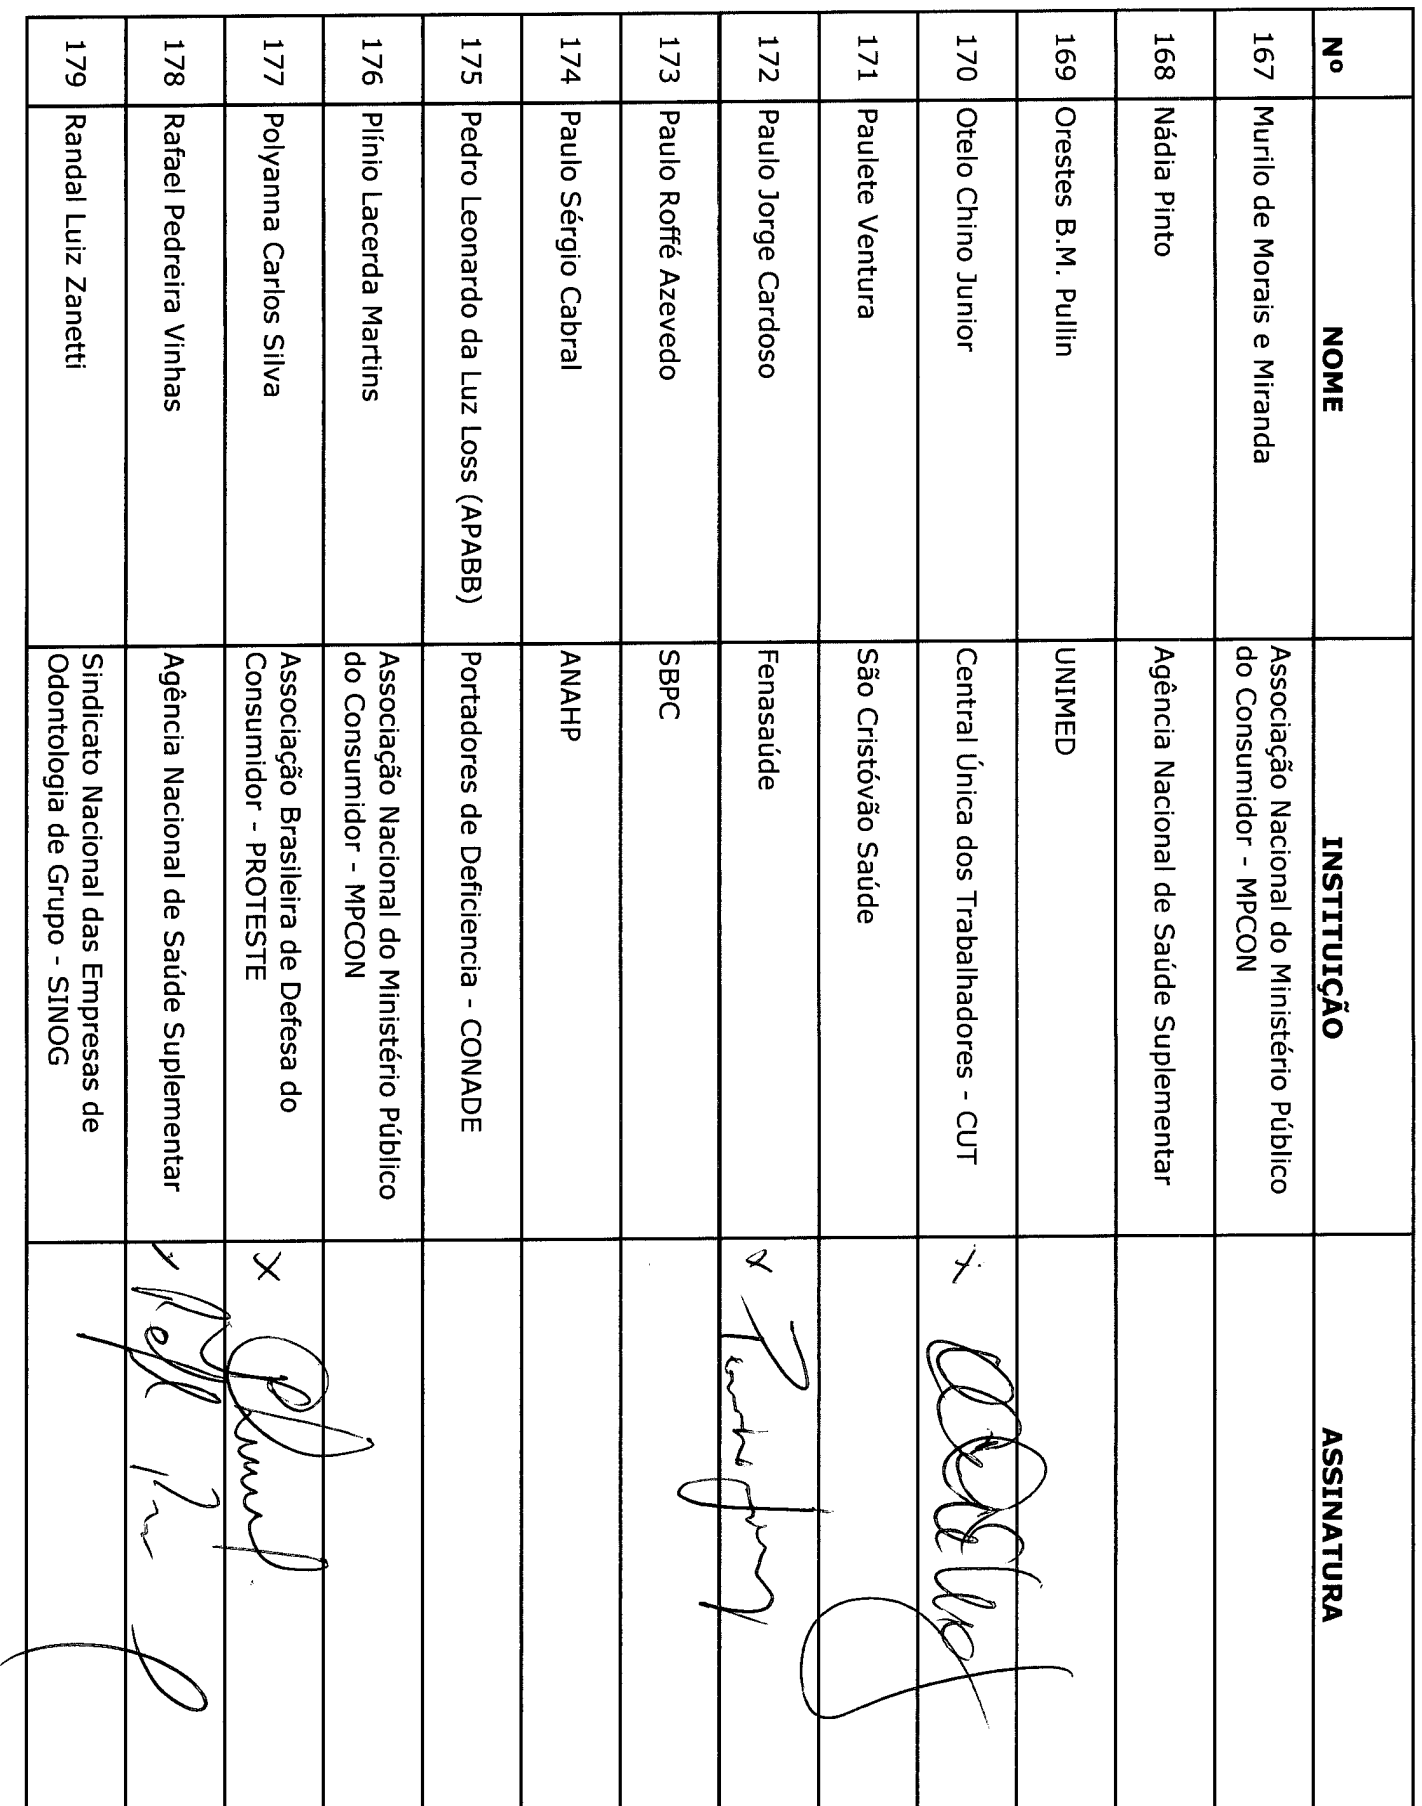 Nº NOME INSTITUIÇÃO ASSINATURA
167 Murilo de Morais e Miranda Associação Nacional do Ministério Público
do Consumidor - MPCON
168 Nádia Pinto Agência Nacional de Saúde Suplementar
169 Orestes B.M. Pullin UNIMED
170 Otelo Chino Junior Central Única dos Trabalhadores - CUT x
171 Paulete Ventura São Cristóvão Saúde
172 Paulo Jorge Cardoso Fenasaúde
173 Paulo Roffé Azevedo SBPC
174 Paulo Sérgio Cabral ANAHP
175 Pedro Leonardo da Luz Loss (APABB) Portadores de Deficiencia - CONADE
176 Plínio Lacerda Martins Associação Nacional do Ministério Público
do Consumidor - MPCON
177 Polyanna Carlos Silva Associação Brasileira de Defesa do
Consumidor - PROTESTE x
178 Rafael Pedreira Vinhas Agência Nacional de Saúde Suplementar
179 Randal Luiz Zanetti Sindicato Nacional das Empresas de
Odontologia de Grupo - SINOG